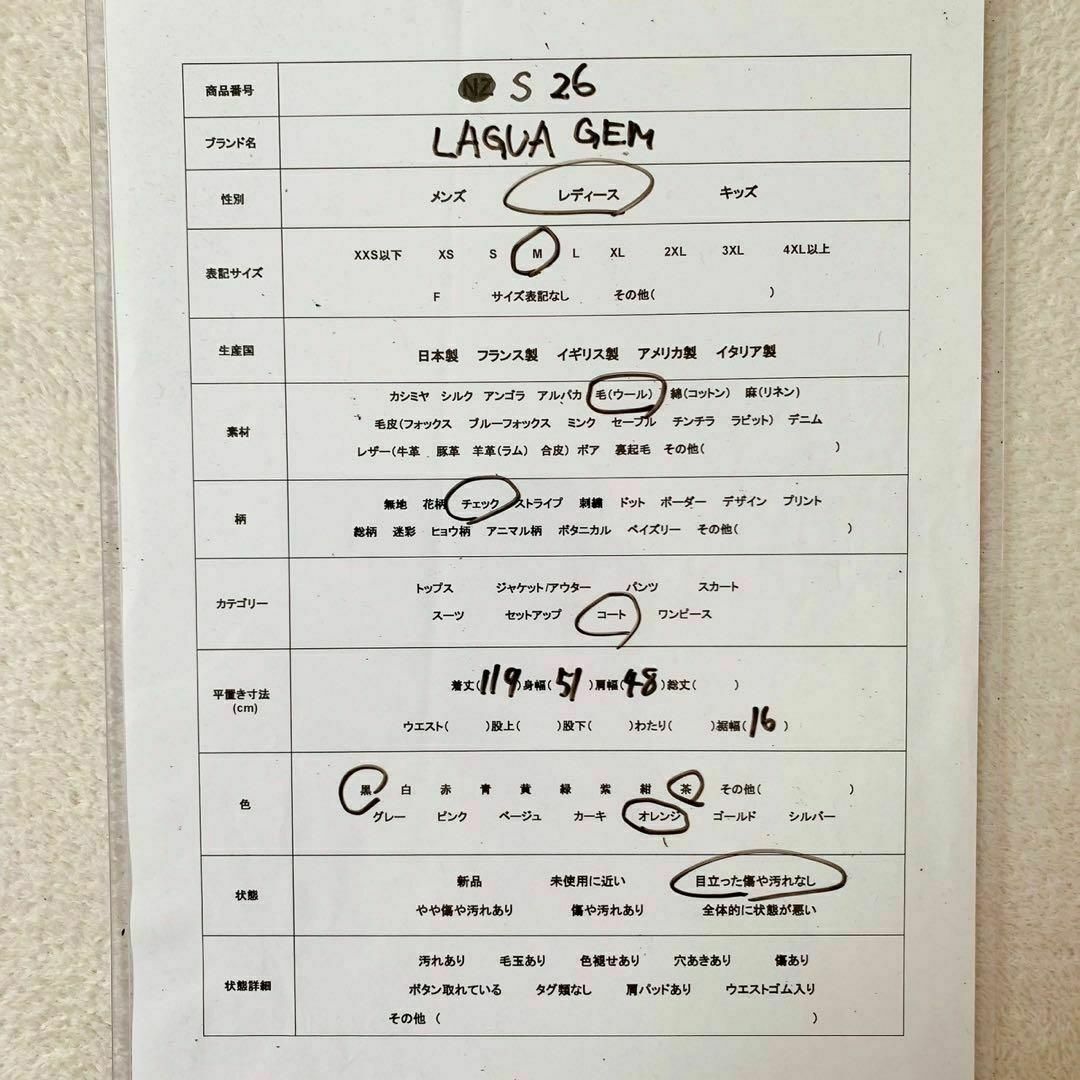 商品番号 NZ S 26
ブランド名 LAGUA GEM
性別 メンズ レディース キッズ
表記サイズ
XXS以下 XS S M L XL 2XL 3XL 4XL以上
F サイズ表記なし その他( )
生産国 日本製 フランス製 イギリス製 アメリカ製 イタリア製
素材
カシミヤ シルク アンゴラ アルパカ 毛(ウール) 綿(コットン) 麻(リネン)
毛皮(フォックス ブルーフォックス ミンク セーブル チンチラ ラビット) デニム
レザー(牛革 豚革 羊革(ラム) 合皮) ボア 裏起毛 その他( )
柄
無地 花柄 チェック ストライプ 刺繍 ドット ボーダー デザイン プリント
総柄 迷彩 ヒョウ柄 アニマル柄 ボタニカル ペイズリー その他( )
カテゴリー
トップス ジャケット/アウター パンツ スカート
スーツ セットアップ コート ワンピース
平置き寸法
(cm)
着丈(119)身幅(51)肩幅(48)総丈( )
ウエスト( )股上( )股下( )わたり( )裾幅(16)
色
黒 白 赤 青 黄 緑 紫 紺 茶 その他( )
グレー ピンク ベージュ カーキ オレンジ ゴールド シルバー
状態
新品 未使用に近い 目立った傷や汚れなし
やや傷や汚れあり 傷や汚れあり 全体的に状態が悪い
状態詳細
汚れあり 毛玉あり 色褪せあり 穴あきあり 傷あり
ボタン取れている タグ類なし 肩パッドあり ウエストゴム入り
その他 ( )